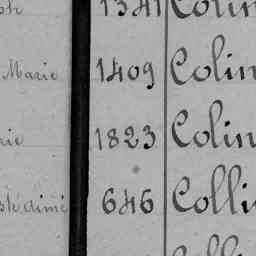 1341 Colin
Marie 1409 Colin
1823 Colin
aimé 646 Colli